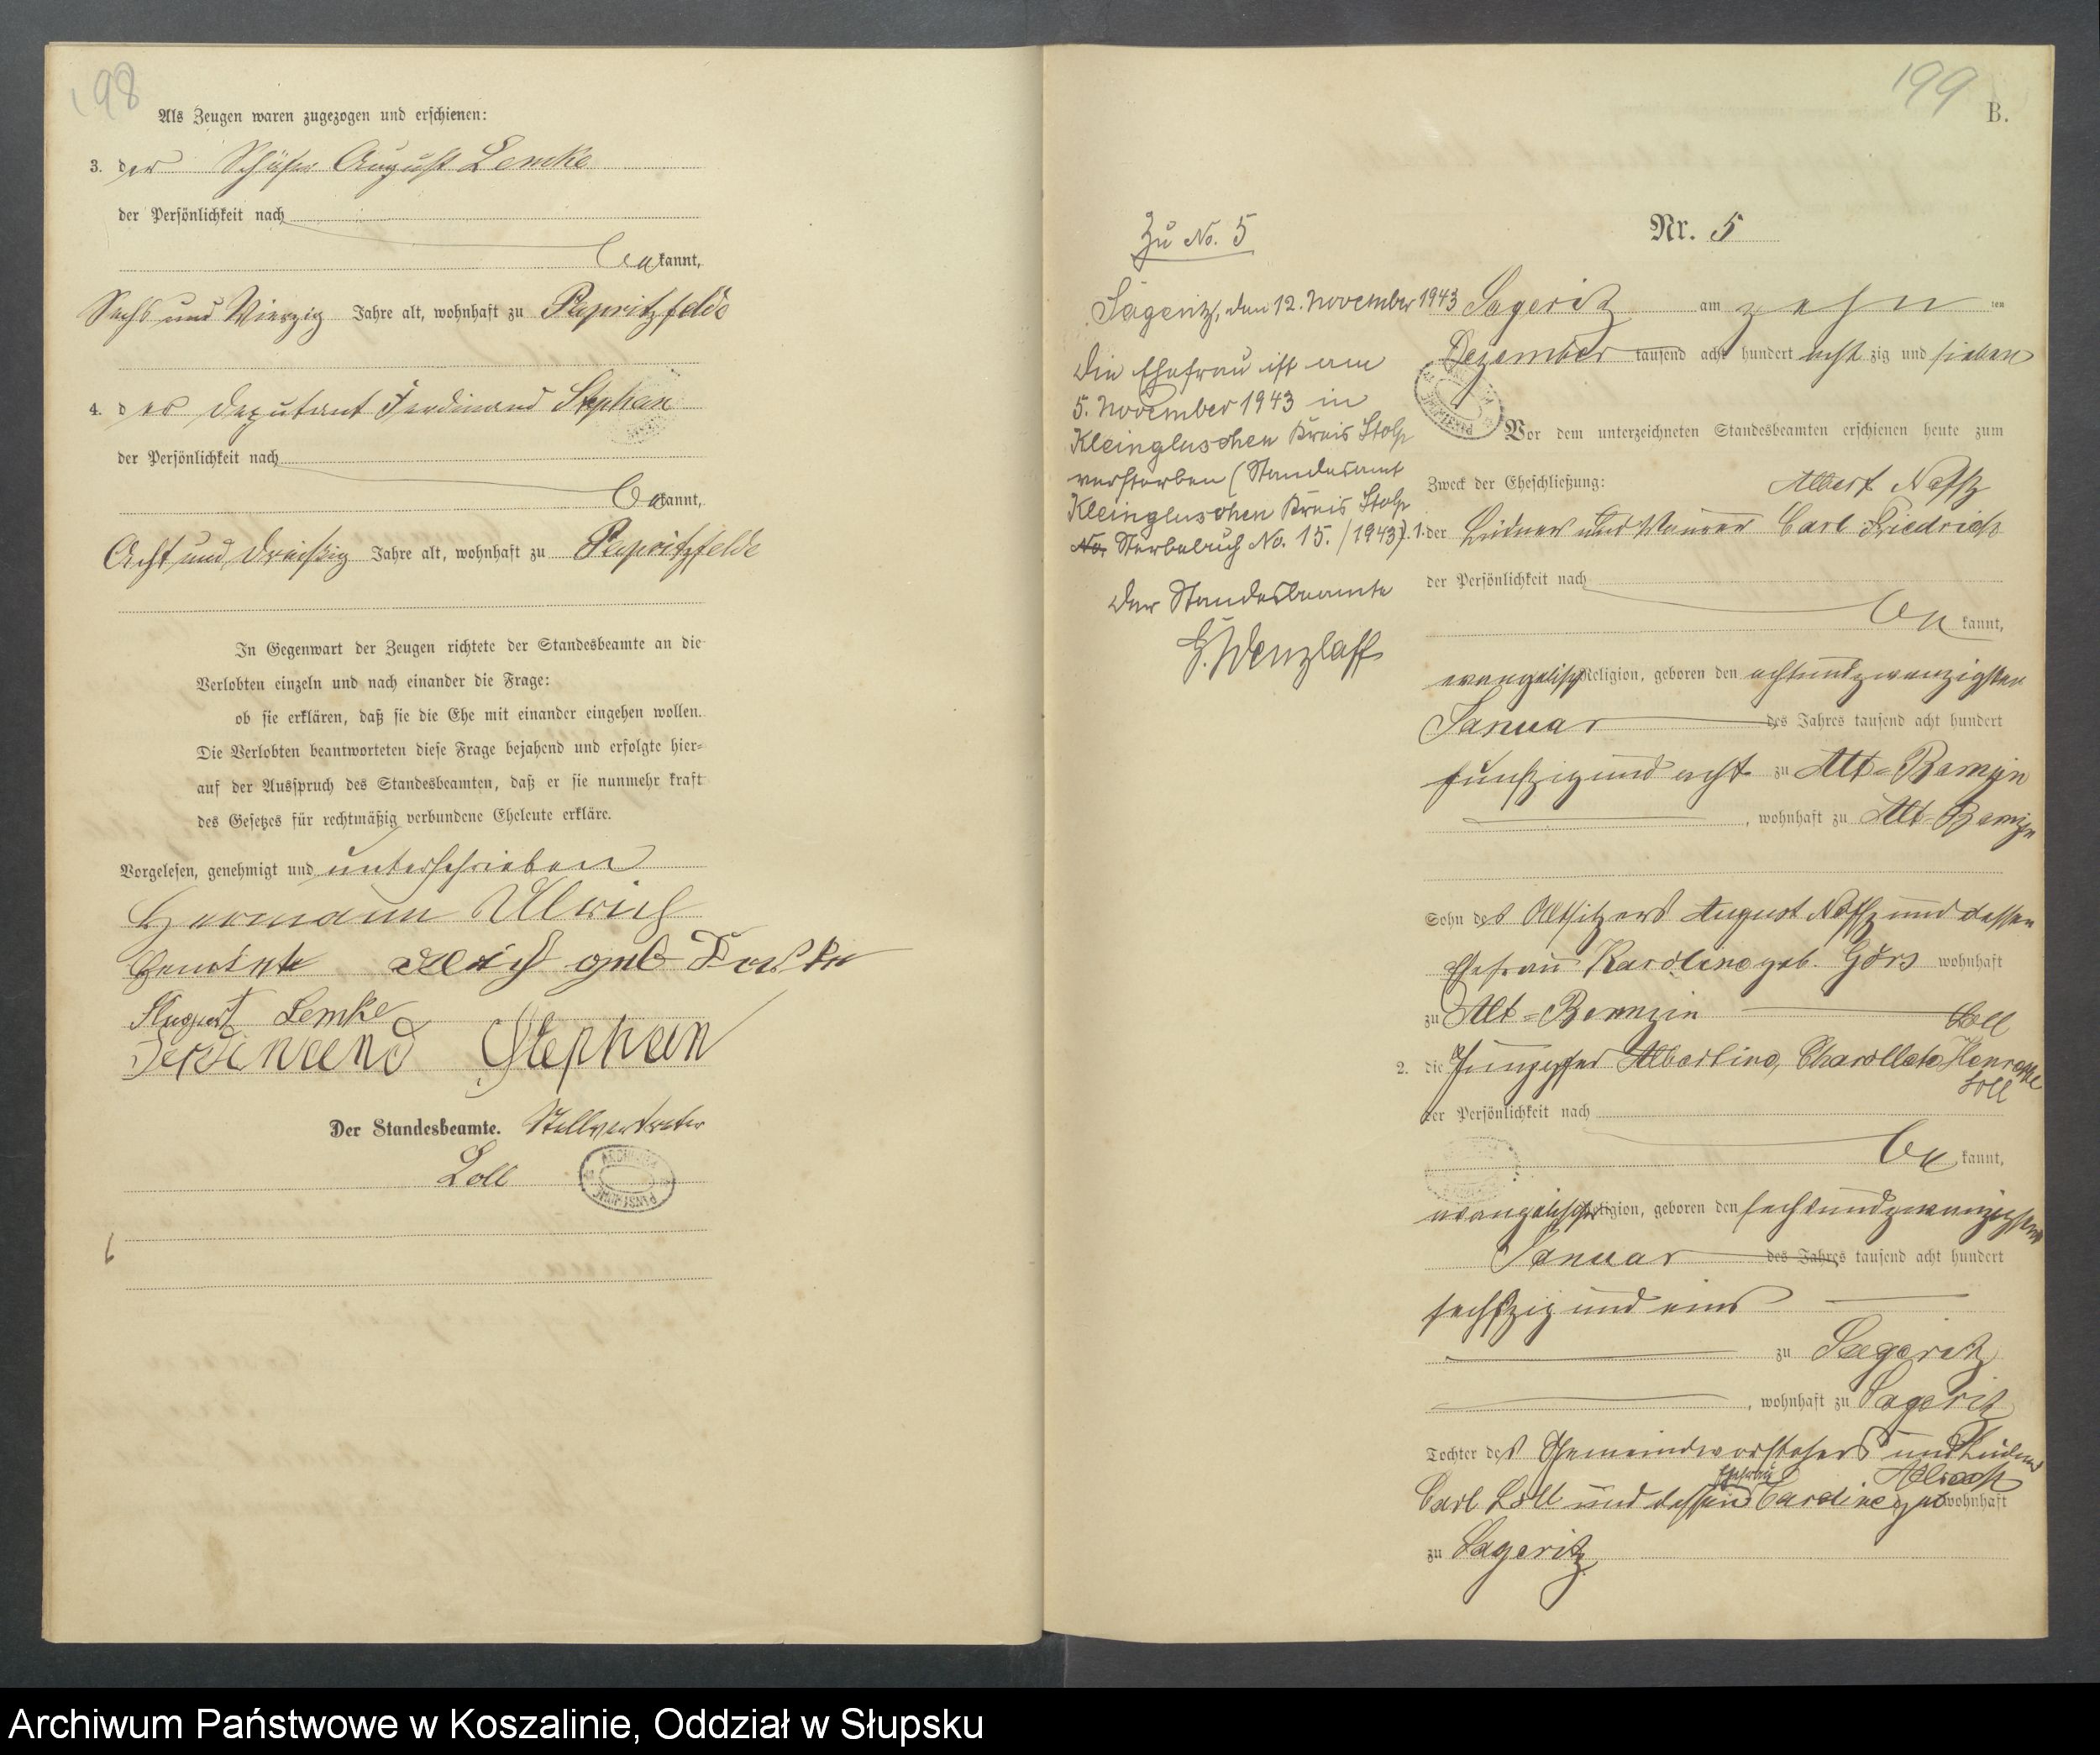 198
Als Zeugen waren zugezogen und erschienen:
3. der Schäfer August Lemke
der Persönlichkeit nach
be kannt,
Sechs und Vierzig Jahre alt, wohnhaft zu Papritzfelde
4. der Deputant Ferdinand Stephan
der Persönlichkeit nach
be kannt,
Acht und Dreißig Jahre alt, wohnhaft zu Papritzfelde
In Gegenwart der Zeugen richtete der Standesbeamte an die
Verlobten einzeln und nach einander die Frage:
ob sie erklären, daß sie die Ehe mit einander eingehen wollen.
Die Verlobten beantworteten diese Frage bejahend und erfolgte hier-
auf der Ausspruch des Standesbeamten, daß er sie nunmehr kraft
des Gesetzes für rechtmäßig verbundene Eheleute erkläre.
Vorgelesen, genehmigt und unterschrieben
Hermann Ulrich
geb
August Lemke
Ferdinand Stephan
Der Standesbeamte. Stellvertreter
Loll
199
B.
Zu No. 5
Nr. 5
Sageritz, den 12. November 1943
Die Ehefrau ist am
5. November 1943 in
Kleingluschen Kreis Stolp
verstorben (Standesamt
Kleingluschen Kreis Stolp
No. Sterbebuch No. 15./1943).
Der Standesbeamte
H. Wenzlaff
Sageritz am zehn ten
Dezember tausend acht hundert acht zig und sieben
Vor dem unterzeichneten Standesbeamten erschienen heute zum
Zweck der Eheschließung: Albert Naffz
1. der Büdner und Maurer Carl Friedrich
der Persönlichkeit nach
be kannt,
evangelischer Religion, geboren den achtundzwanzigsten
Januar des Jahres tausend acht hundert
funfzig und acht zu Alt-Bamzin
, wohnhaft zu Alt-Bamzin
Sohn des Altsitzers August Naffz und dessen
Ehefrau Karoline geb. Görs wohnhaft
zu Alt-Bamzin
Loll
2. die Jungfer Albertine, Charollate Henrette
Loll
der Persönlichkeit nach
be kannt,
evangelischer Religion, geboren den sechsundzwanzigsten
Januar des Jahres tausend acht hundert
sechszig und eins
zu Sageritz
, wohnhaft zu Sageritz
Tochter des Gemeindevorstehers und Büdner
Ehefrau
Carl Loll und dessen Caroline geb wohnhaft
zu Sageritz
Archiwum Państwowe w Koszalinie, Oddział w Słupsku